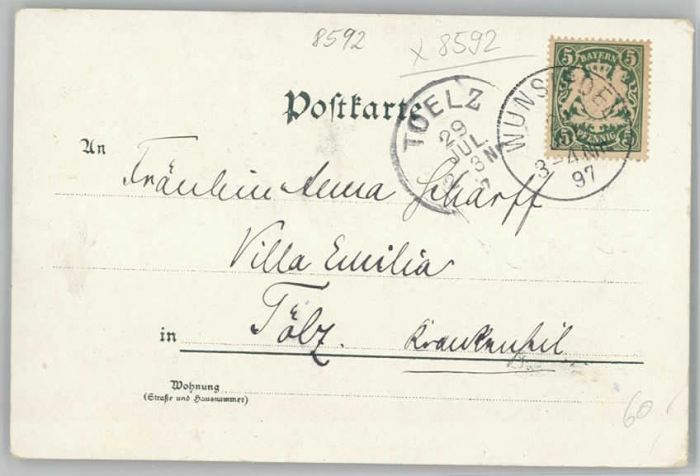 8592
x 8592
5 BAYERN 5
5 PFENNIG 5
Postkarte
TOELZ
29
JUL.
3 N
WUNS DEL
3-4 NM
97
An
Fräulein Anna Scharff
Villa Emilia
in Tölz. Krankenheil
Wohnung
(Straße und Hausnummer)
60